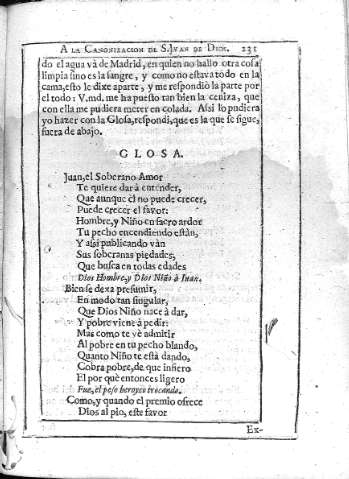 A LA CANONIZACION DE S. IVAN DE DIOS. 231
do el agua và de Madrid, en quien no hallo otra cosa
limpia sino es la sangre, y como no estava todo en la
cama, esto le dixe aparte, y me respondiò la parte por
el todo: V.md. me ha puesto tan bien la ceniza, que
con ella me pudiera meter en colada. Assi lo pudiera
yo hazer con la Glosa, respondi, que es la que se sigue,
fuera de abajo.
GLOSA.
Juan, el Soberano Amor
Te quiere dar à entender,
Que aunque èl no puede crecer,
Puede crecer el favor:
Hombre, y Niño en sacro ardor
Tu pecho encendiendo estàn,
Y assi publicando vàn
Sus soberanas piedades,
Que busca en todas edades
Dios Hombre, y Dios Niño à Iuan.
Bien se dexa presumir,
En modo tan singular,
Que Dios Niño nace à dar,
Y pobre viene à pedir:
Mas como te vè admitir
Al pobre en tu pecho blando,
Quanto Niño te està dando,
Cobra pobre, de que infiero
El por què entonces ligero
Fue, el peso heroyco trocando.
Como, y quando el premio ofrece
Dios al pio, este favor
Ex-